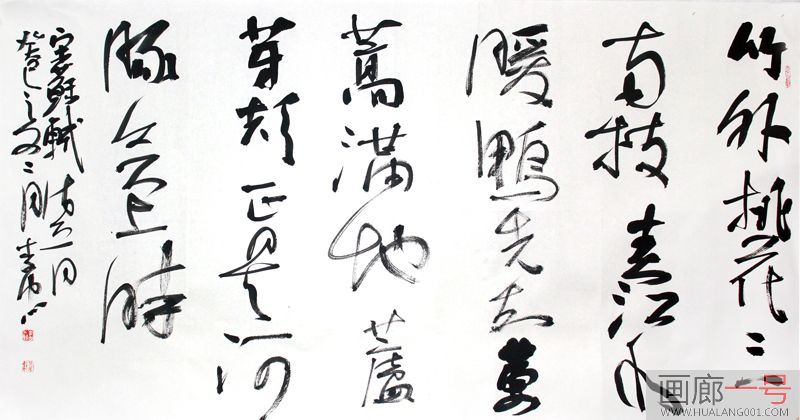 竹外桃花三
两枝春江水
暖鴨先知蔞
蒿滿地蘆
芽短正是河
豚欲上時
蘇軾詩一
癸巳之二月
画廊一号
WWW.HUALANG001.COM